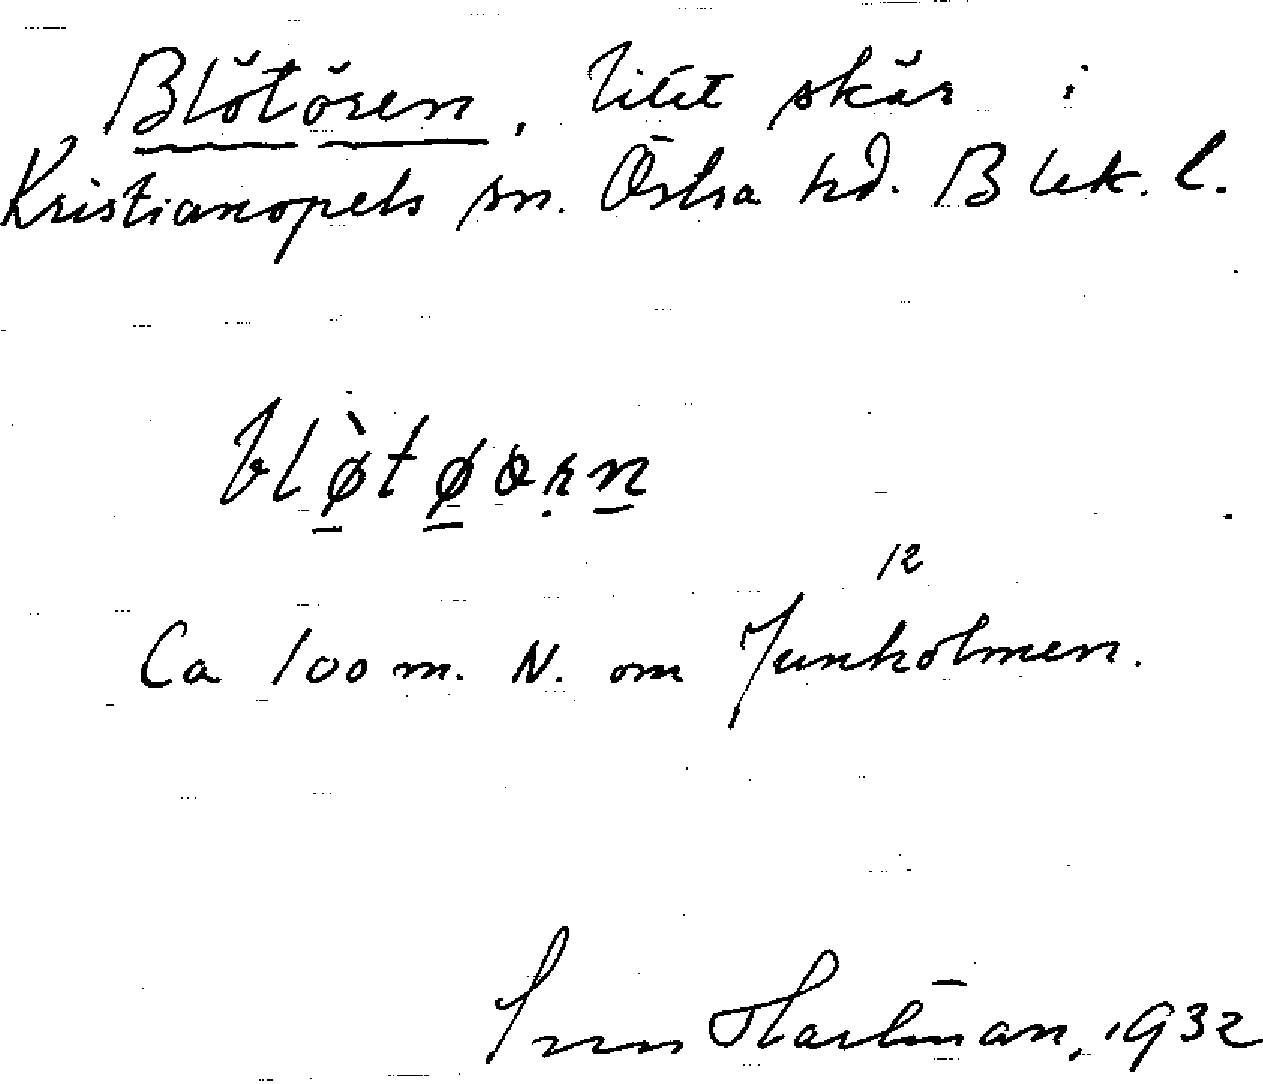 Blötören, litet skär i
Kristianopels sn. Östra hd. Blek. l.
bl
12
Ca 100 m. N. om Junholmen.
Sven Hartman, 1932